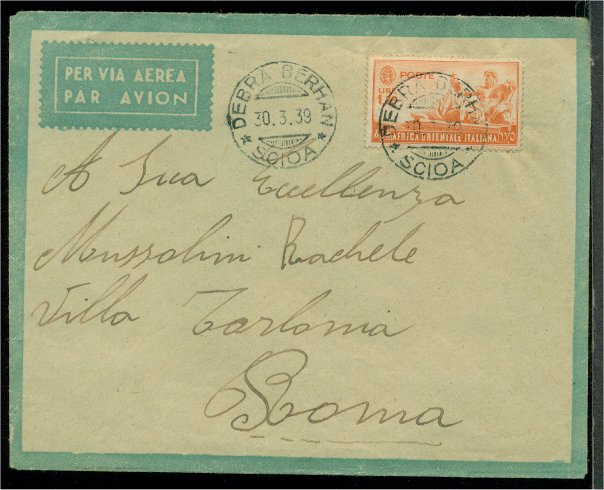 PER VIA AEREA
PAR AVION
DEBRA BERHAN
30.3.39
SCIOA
POSTE
LIRE
AFRICA ORIENTALE ITALIANA
DEBRA BERHAN
SCIOA
A Sua Eccellenza
Mussolini Rachele
Villa Torlonia
Roma